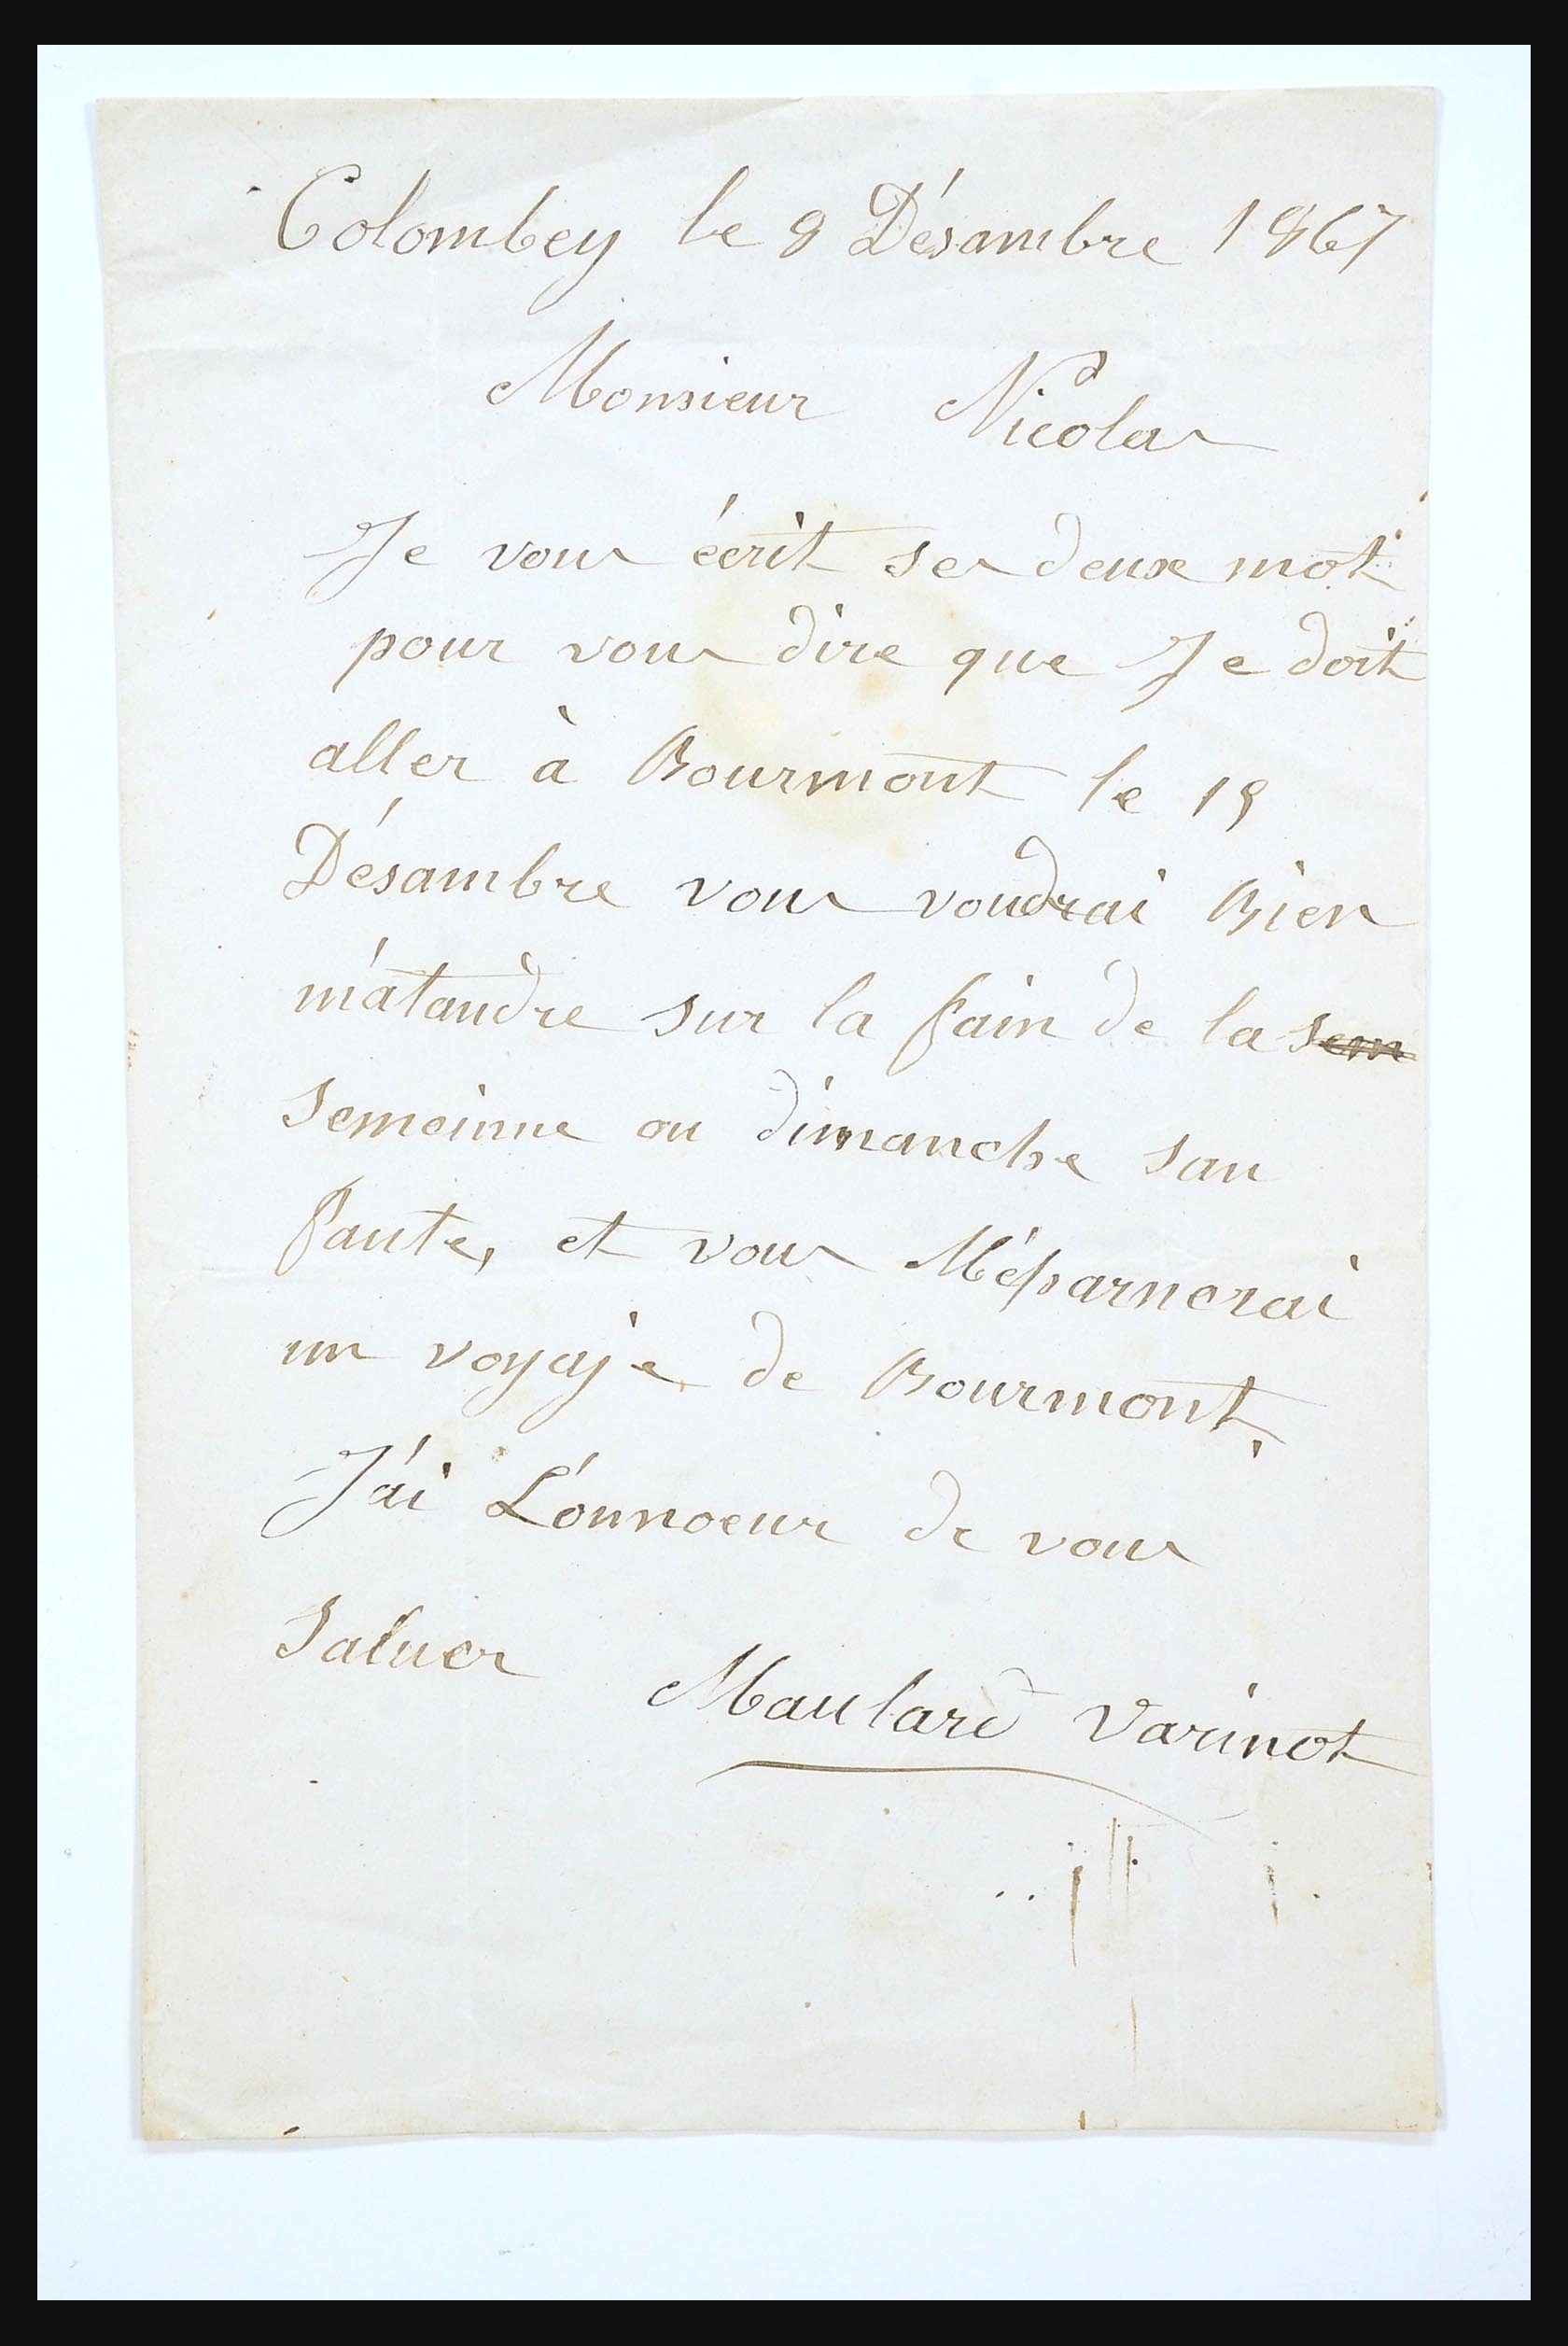 Colombey le 8 Désambre 1867
Monsieur Nicolas
Je vous écrit ses deux mot
pour vous dire que Je doit
aller à Bourmont le 19
Désambre vous voudrai Bien
m'atandre sur la fain de la sem
semeinne ou dimanche san
faute, et vous M'éparnerai
un voyaje de Bourmont.
J'ai L'onnoeur de vous
Saluer
Maulard Varinot